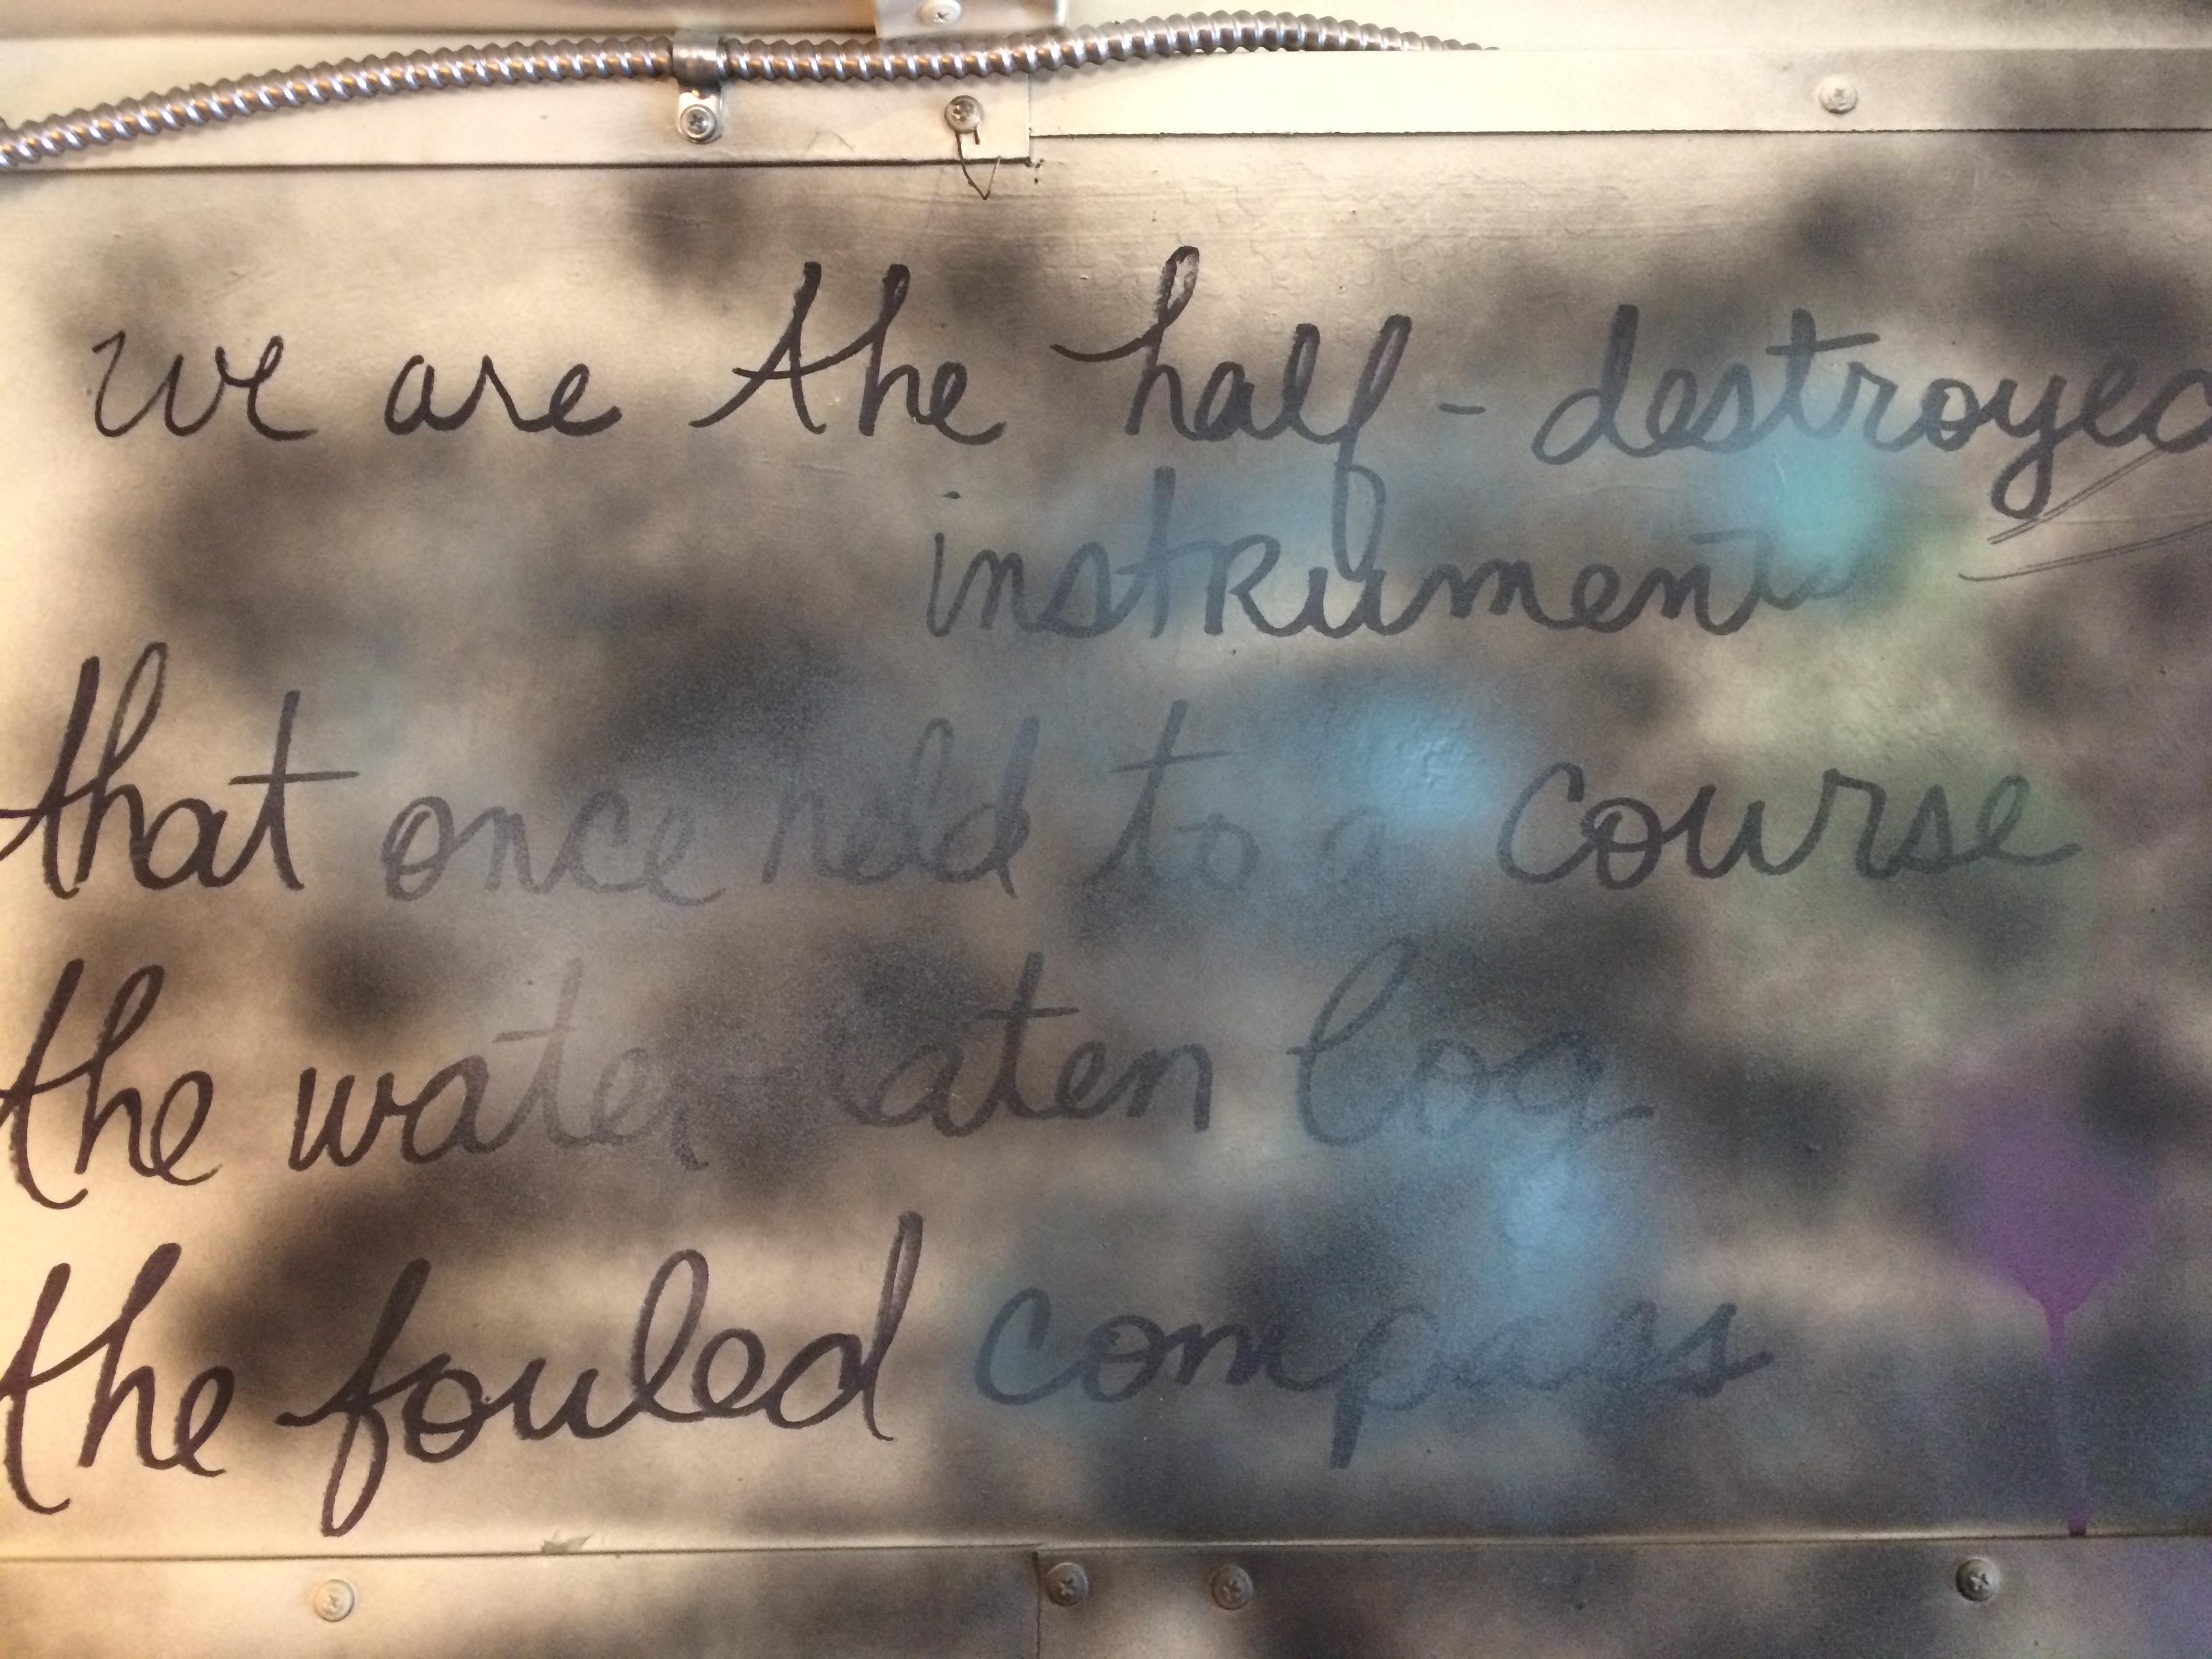 we are the half-destroyed
instruments
that once held to a course
the water-eaten log
the fouled compass